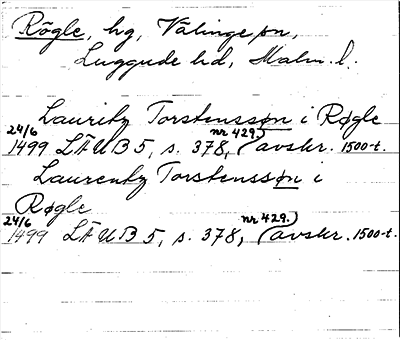 Rögle, hg, Välinge sn,
Luggude hd, Malm. l.
Lauritz Torstenssøn i Røgle
24/6 1499 LÄUB 5, s. 378, nr 429. (avskr. 1500-t.
Laurentz Torstenssøn i
Røgle
24/6 1499 LÄUB 5, s. 378, nr 429. (avskr. 1500-t.